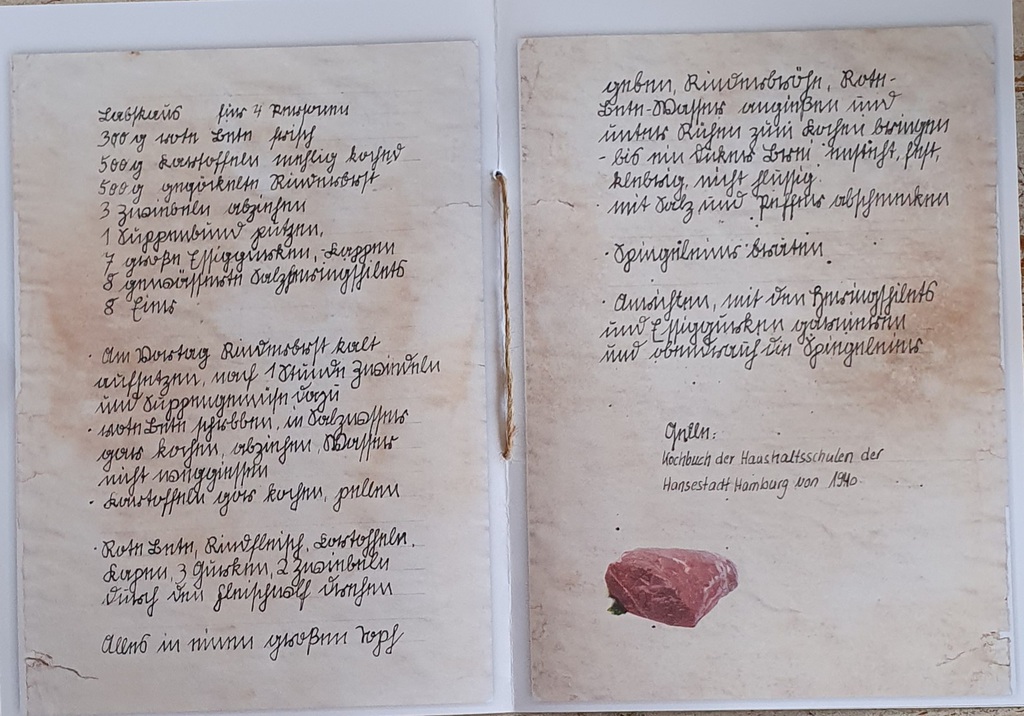 Labskaus für 4 Personen
300 g rote Bete frisch
500 g Kartoffeln mehlig koched
500 g gepökelte Rinderbrst
3 Zwiebeln abziehen
1 Suppenbund putzen,
7 große Essiggurken, Kappen
8 gewässerte Salzheringsfilets
8 Eier
· Am Vortag Rinderbrst kalt
aufsetzen, nach 1 Stunde Zwiebeln
und Suppengemüse dazu
· rote Bete schrbben, in Salzwasser
gar kochen, abziehen, Wasser
nicht weggiessen
· Kartoffeln gar kochen, pellen
· Rote Bete, Rindfleisch, Kartoffeln,
Kapen, 3 Gurken, 2 Zwiebeln
durch den Fleischwolf drehen
Alles in einen großen Topf
geben, Rinderbröhe, Rote-
Bete-Wasser angießen und
unter Rühen zum Kochen bringen
- bis ein dicker Brei ensteht, fest,
klebrig, nicht flussig.
· mit Salz und Peffer abschmecken
· Spiegeleier braten
· Anrichten, mit den Heringsfilets
und Essiggurken garnieren
und obendrauf die Spiegeleier
Qelle:
Kochbuch der Haushaltsschulen der
Hansestadt Hamburg von 1940.